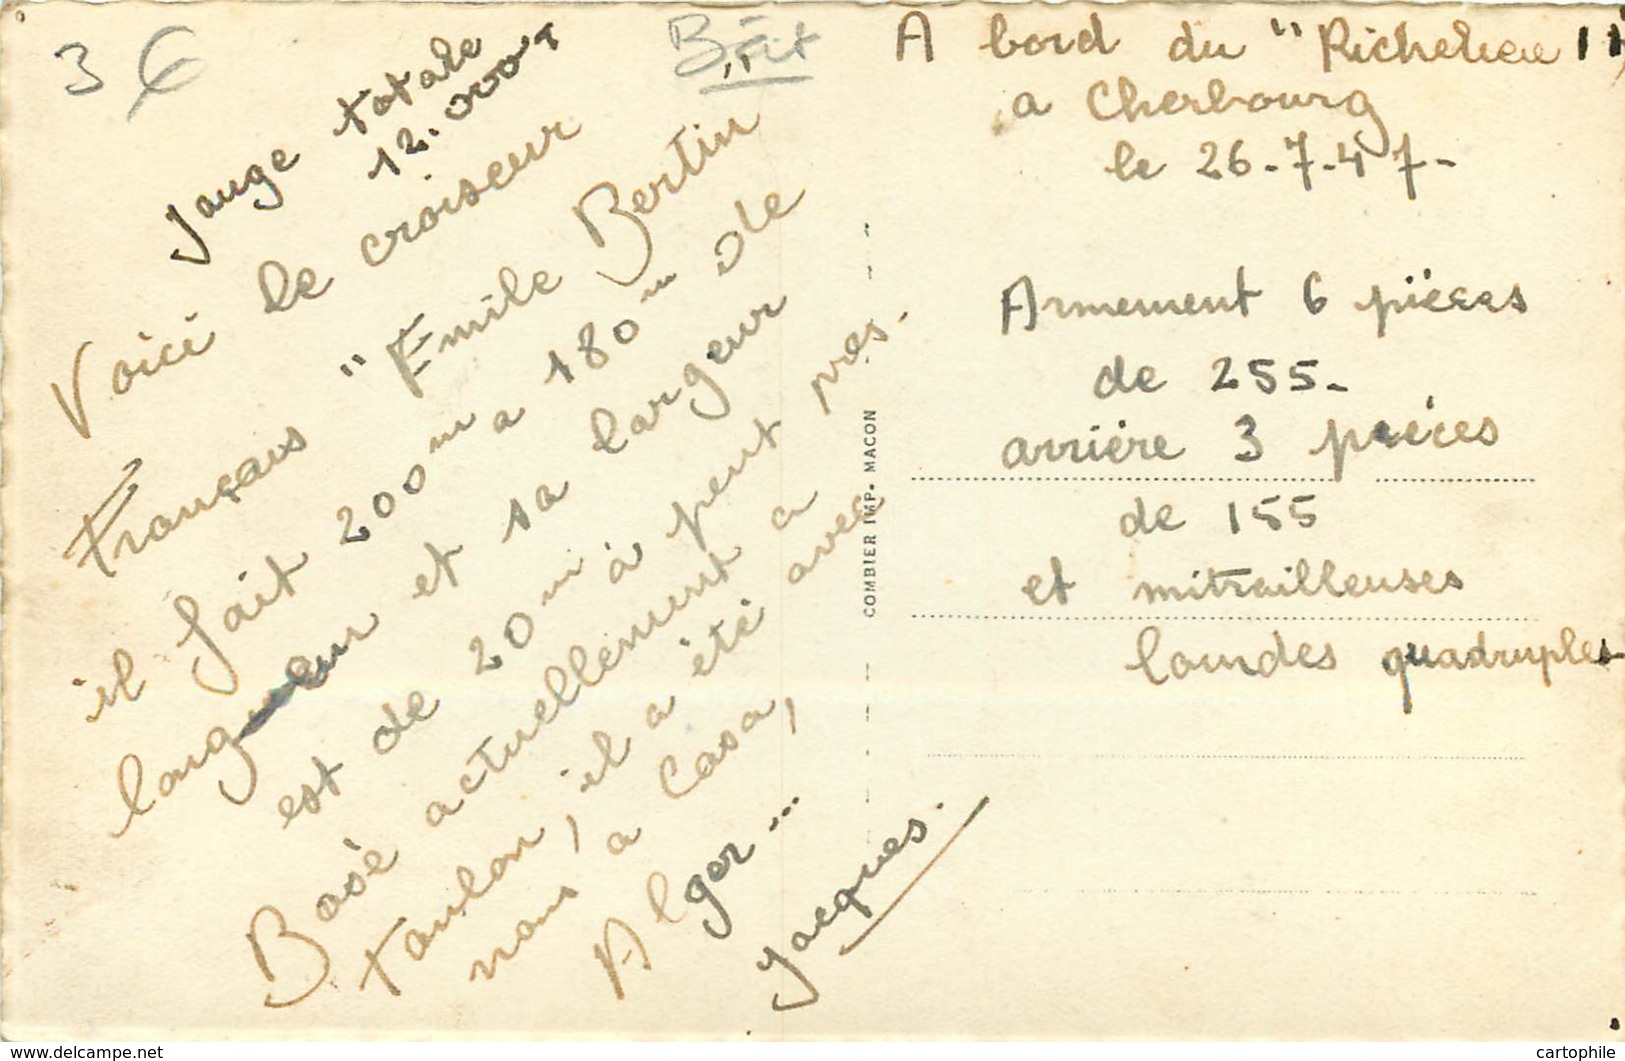 3 €
Jauge totale
12.000 T
Voici le croiseur
Français "Emile Bertin
il fait 200 m a 180 m de
longueur et sa largeur
est de 20 m à peut pres.
Basè actuellement a
toulon, il a été avec
nous a Casa,
Alger...
Jacques.
A bord du "Richelieu"
a Cherbourg
le 26-7-47-
Armement 6 pièces
de 255-
arrière 3 pièces
de 155
et mitrailleuses
lourdes quadruples
COMBIER IMP. MACON
www.delcampe.net
cartophile